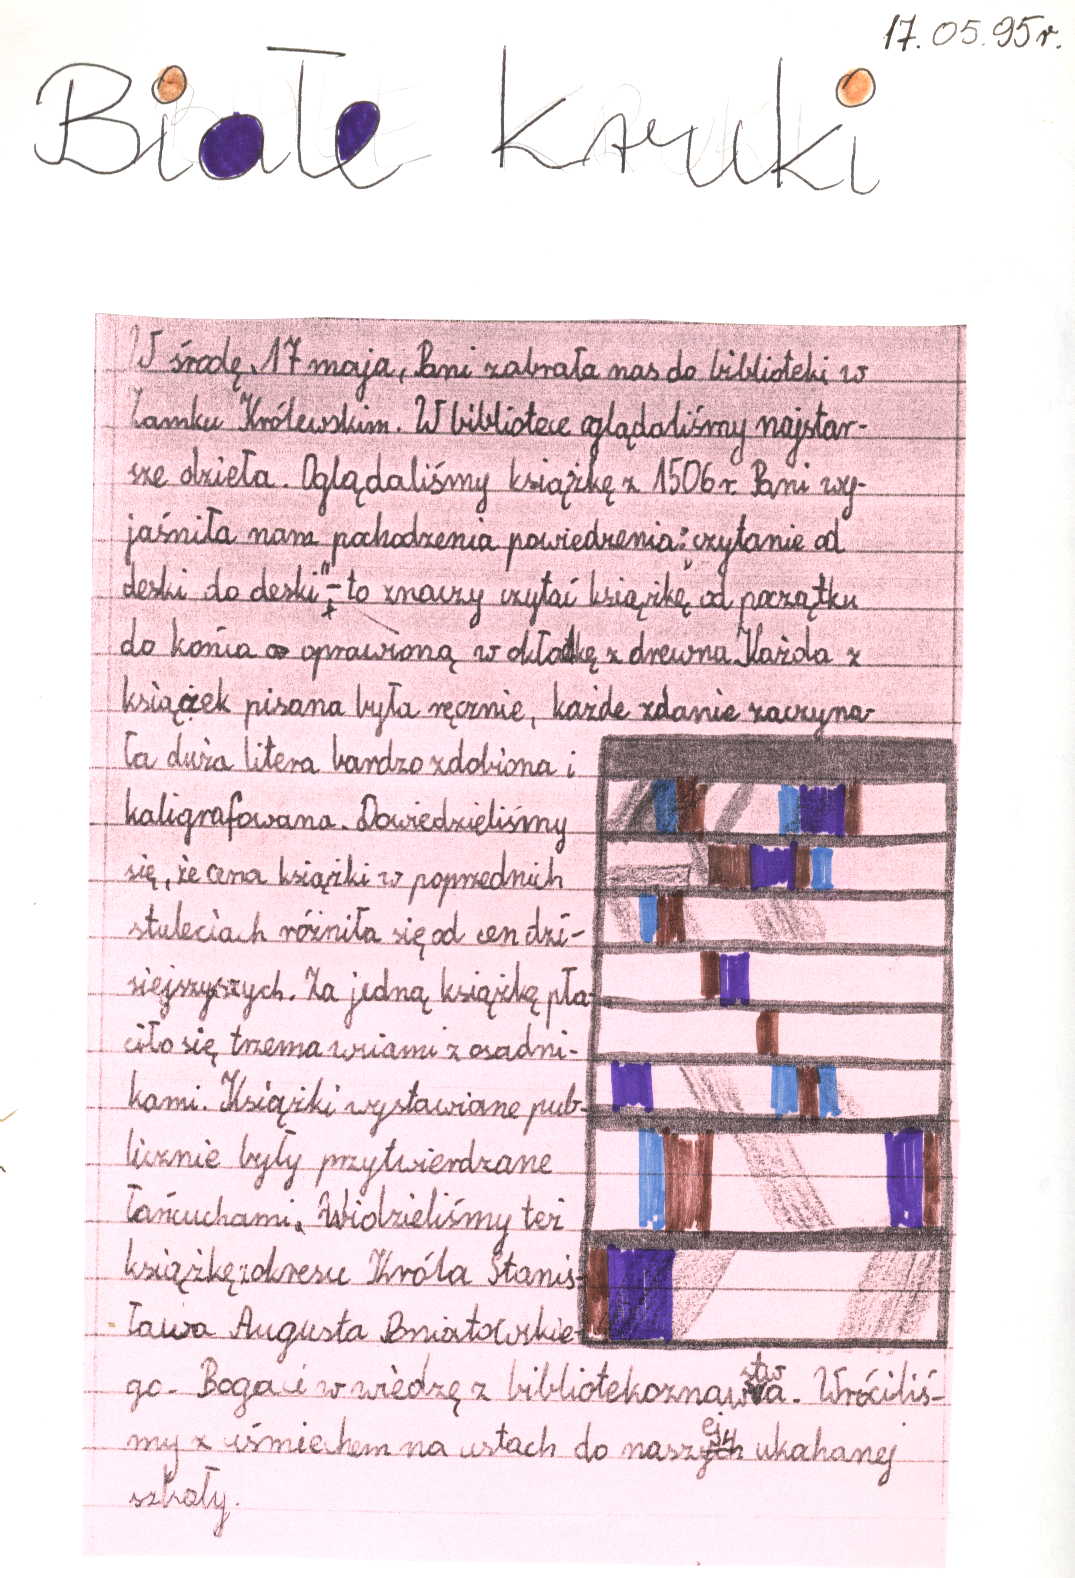 17.05.95r.
Białe kruki
W środę, 17 maja, Pani zabrała nas do biblioteki w
Zamku Królewskim. W bibliotece oglądaliśmy najstar-
sze dzieła. Oglądaliśmy książkę z 1506 r. Pani wy-
jaśniła nam pochodzenia powiedzenia: „czytanie od
deski do deski" - to znaczy czytać książkę od początku
do końca oprawioną w okładkę z drewna. Każda z
książek pisana była ręcznie, każde zdanie zaczyna-
ła duża litera bardzo zdobiona i
kaligrafowana. Dowiedzieliśmy
się, że cena książki w poprzednich
stuleciach różniła się od cen dzi-
siejszyszych. Za jedną książkę pła-
ciło się trzema wsiami z osadni-
kami. Książki wystawiane pub-
licznie były przytwierdzane
łańcuchami. Widzieliśmy też
książkę z okresu Króla Stanis-
ława Augusta Poniatowskie-
go. Bogaci w wiedzę z bibliotekoznawstwa. Wróciliś-
my z uśmiechem na ustach do naszej ukahanej
szkoły.